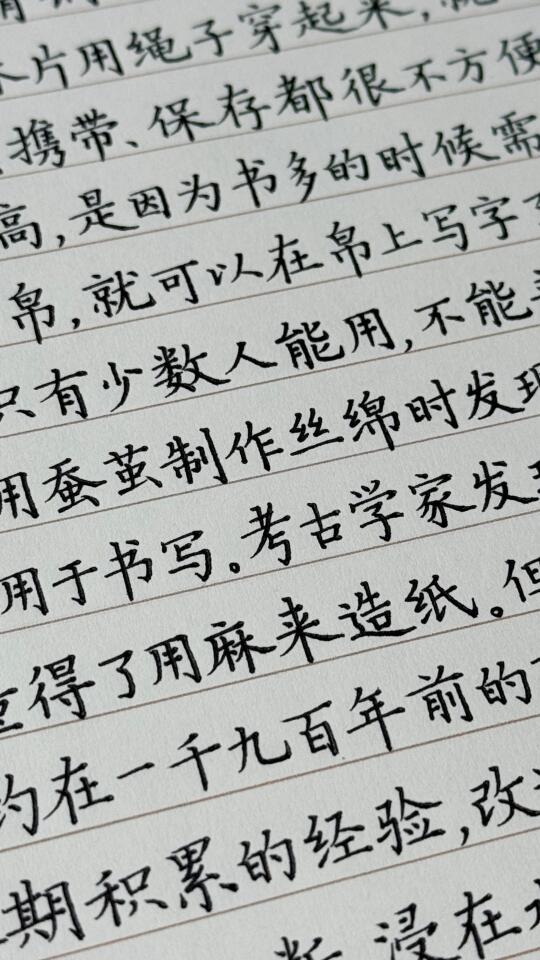 片用绳子穿起来,
携带、保存都很不方便
高,是因为书多的时候需
帛,就可以在帛上写字
只有少数人能用,不能
用蚕茧制作丝绵时发现
用于书写。考古学家发
得了用麻来造纸。但
约在一千九百年前的
期积累的经验,改
浸在